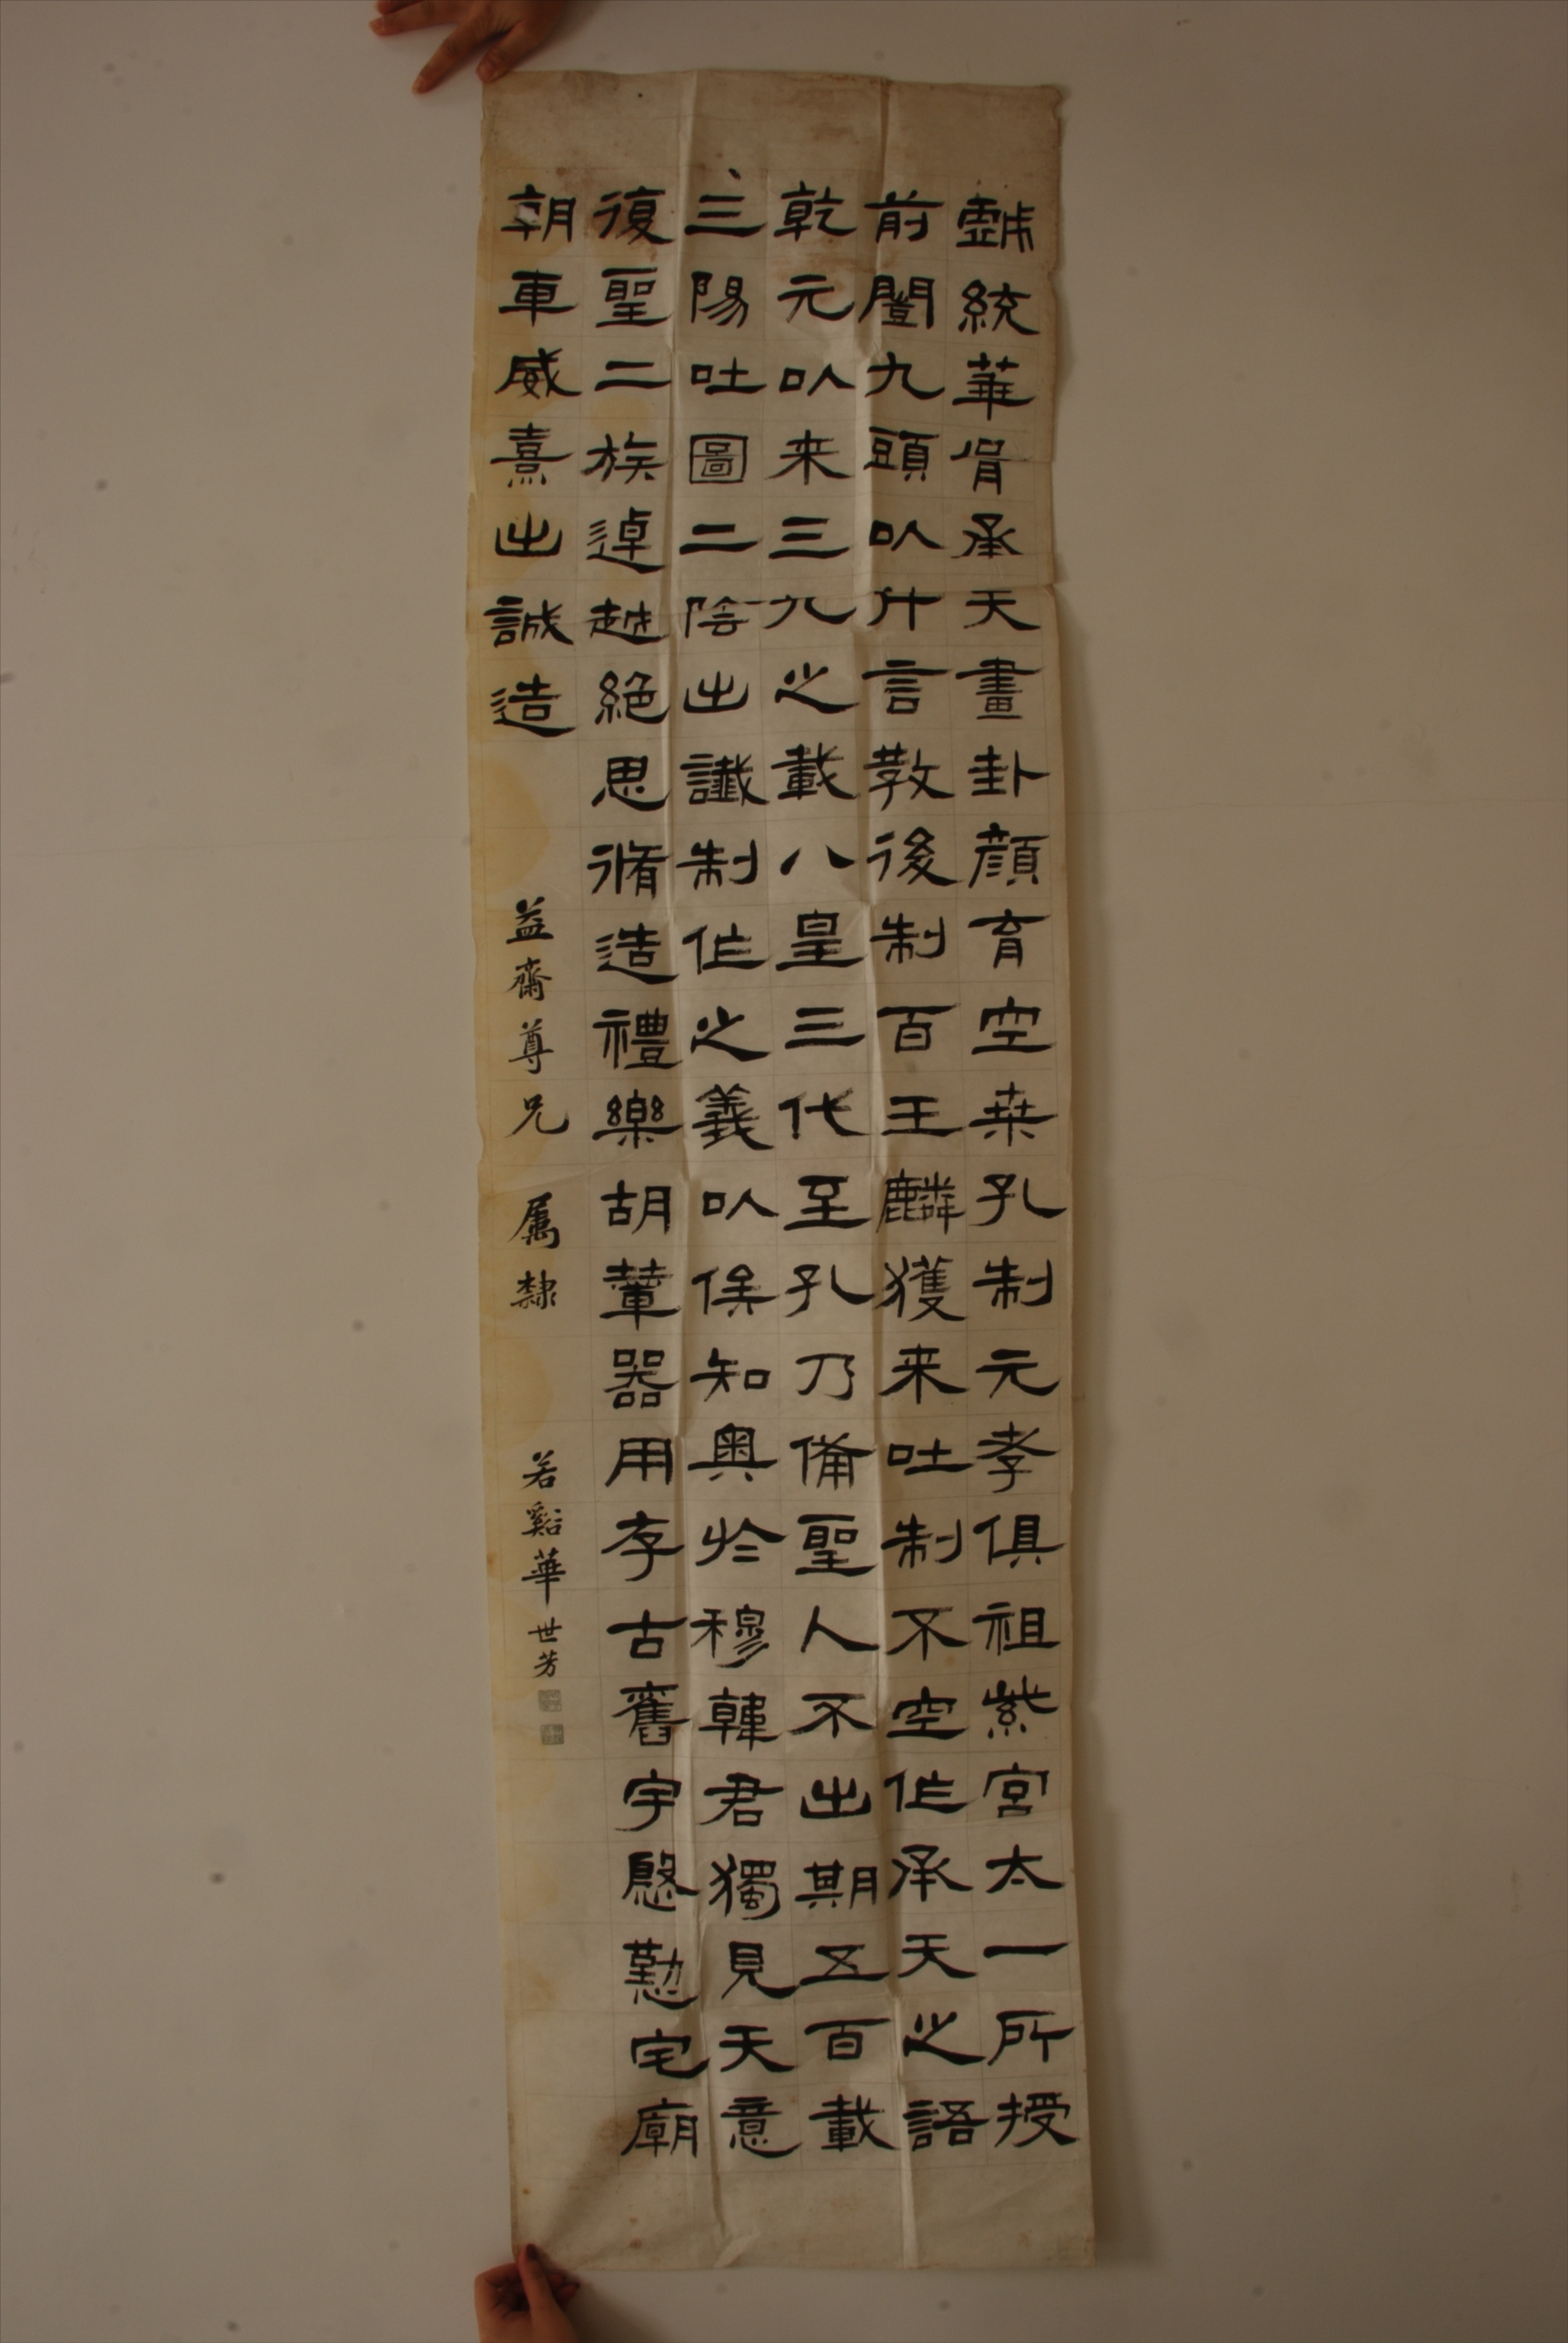 戲統華胥承天畫卦顏育空桑孔制元孝俱祖紫宮太一所授
前闓九頭以什言教後制百王麟獲来吐制不空作承天之語
乾元以来三九之載八皇三代至孔乃備聖人不出期五百載
三陽吐圖二陰出讖制作之義以俟知奧於穆韓君獨見天意
復聖二族逴越絶思脩造禮樂胡輦器用存古舊宇慇懃宅廟
朝車威熹出誠造
益齋尊兄 属隸 若谿華世芳